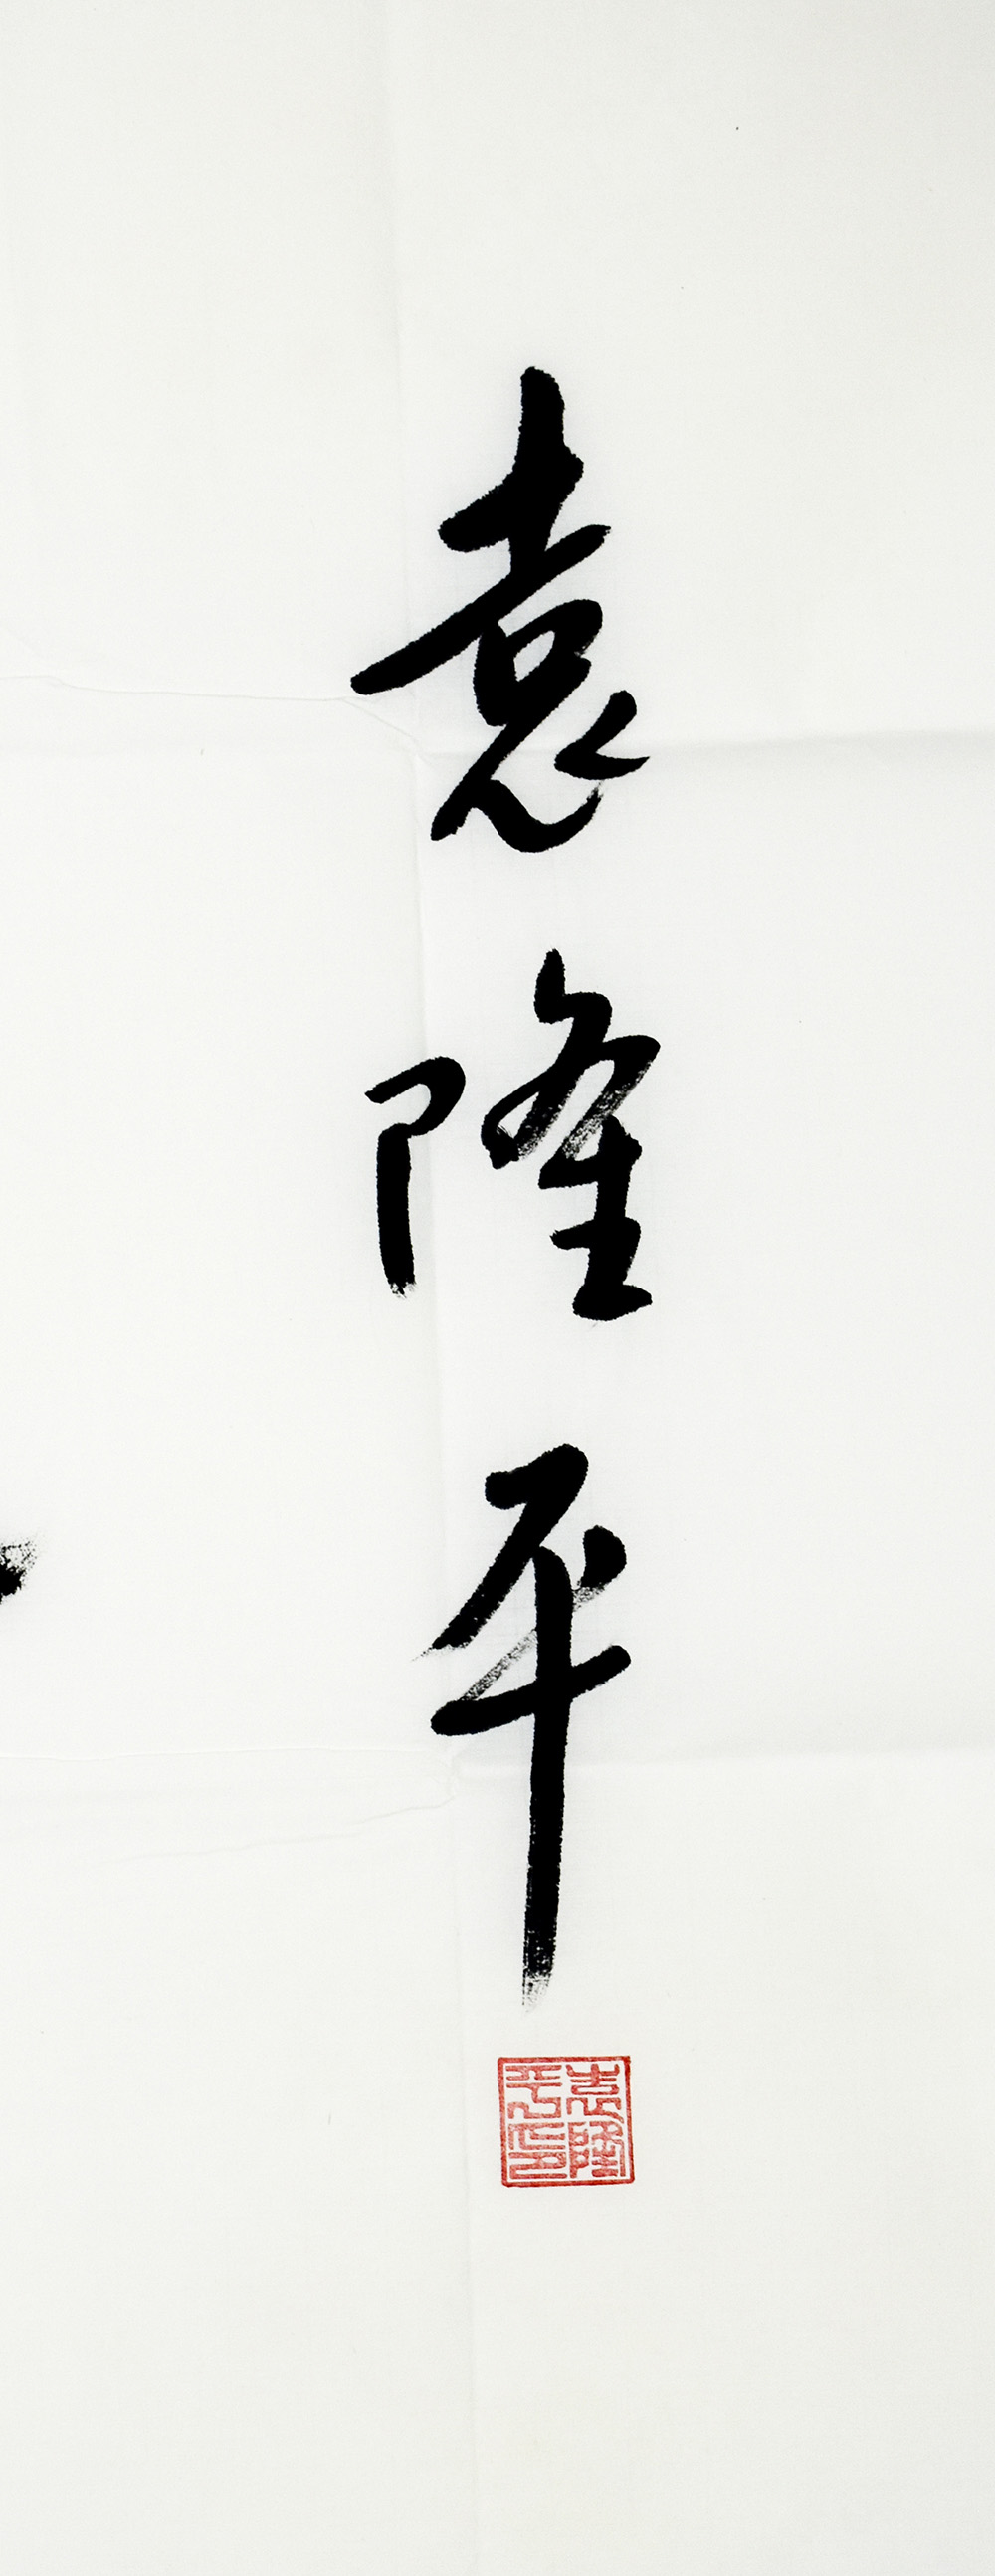 袁隆平
袁隆平印